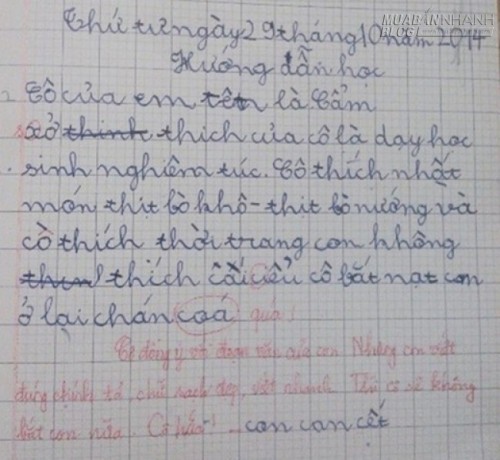 MUABANNHANH
BLOG
Thứ tư ngày 29 tháng 10 năm 2014
Hướng dẫn học
Cô của em tên là Cẩm
sở thinh thich của cô là dạy học
sinh nghiêm túc. Cô thích nhất
món thịt bò khô - thịt bò nướng và
cô thích thời trang con không
thích cái kiểu cô bắt nạt con
ở lại chán coá quá!
Cô đồng ý với đoạn văn của con Nhưng con viết
đúng chính tả chữ sạch đẹp, viết nhanh Thì cô sẽ không
bắt con nữa. Cô hứa! con can cết